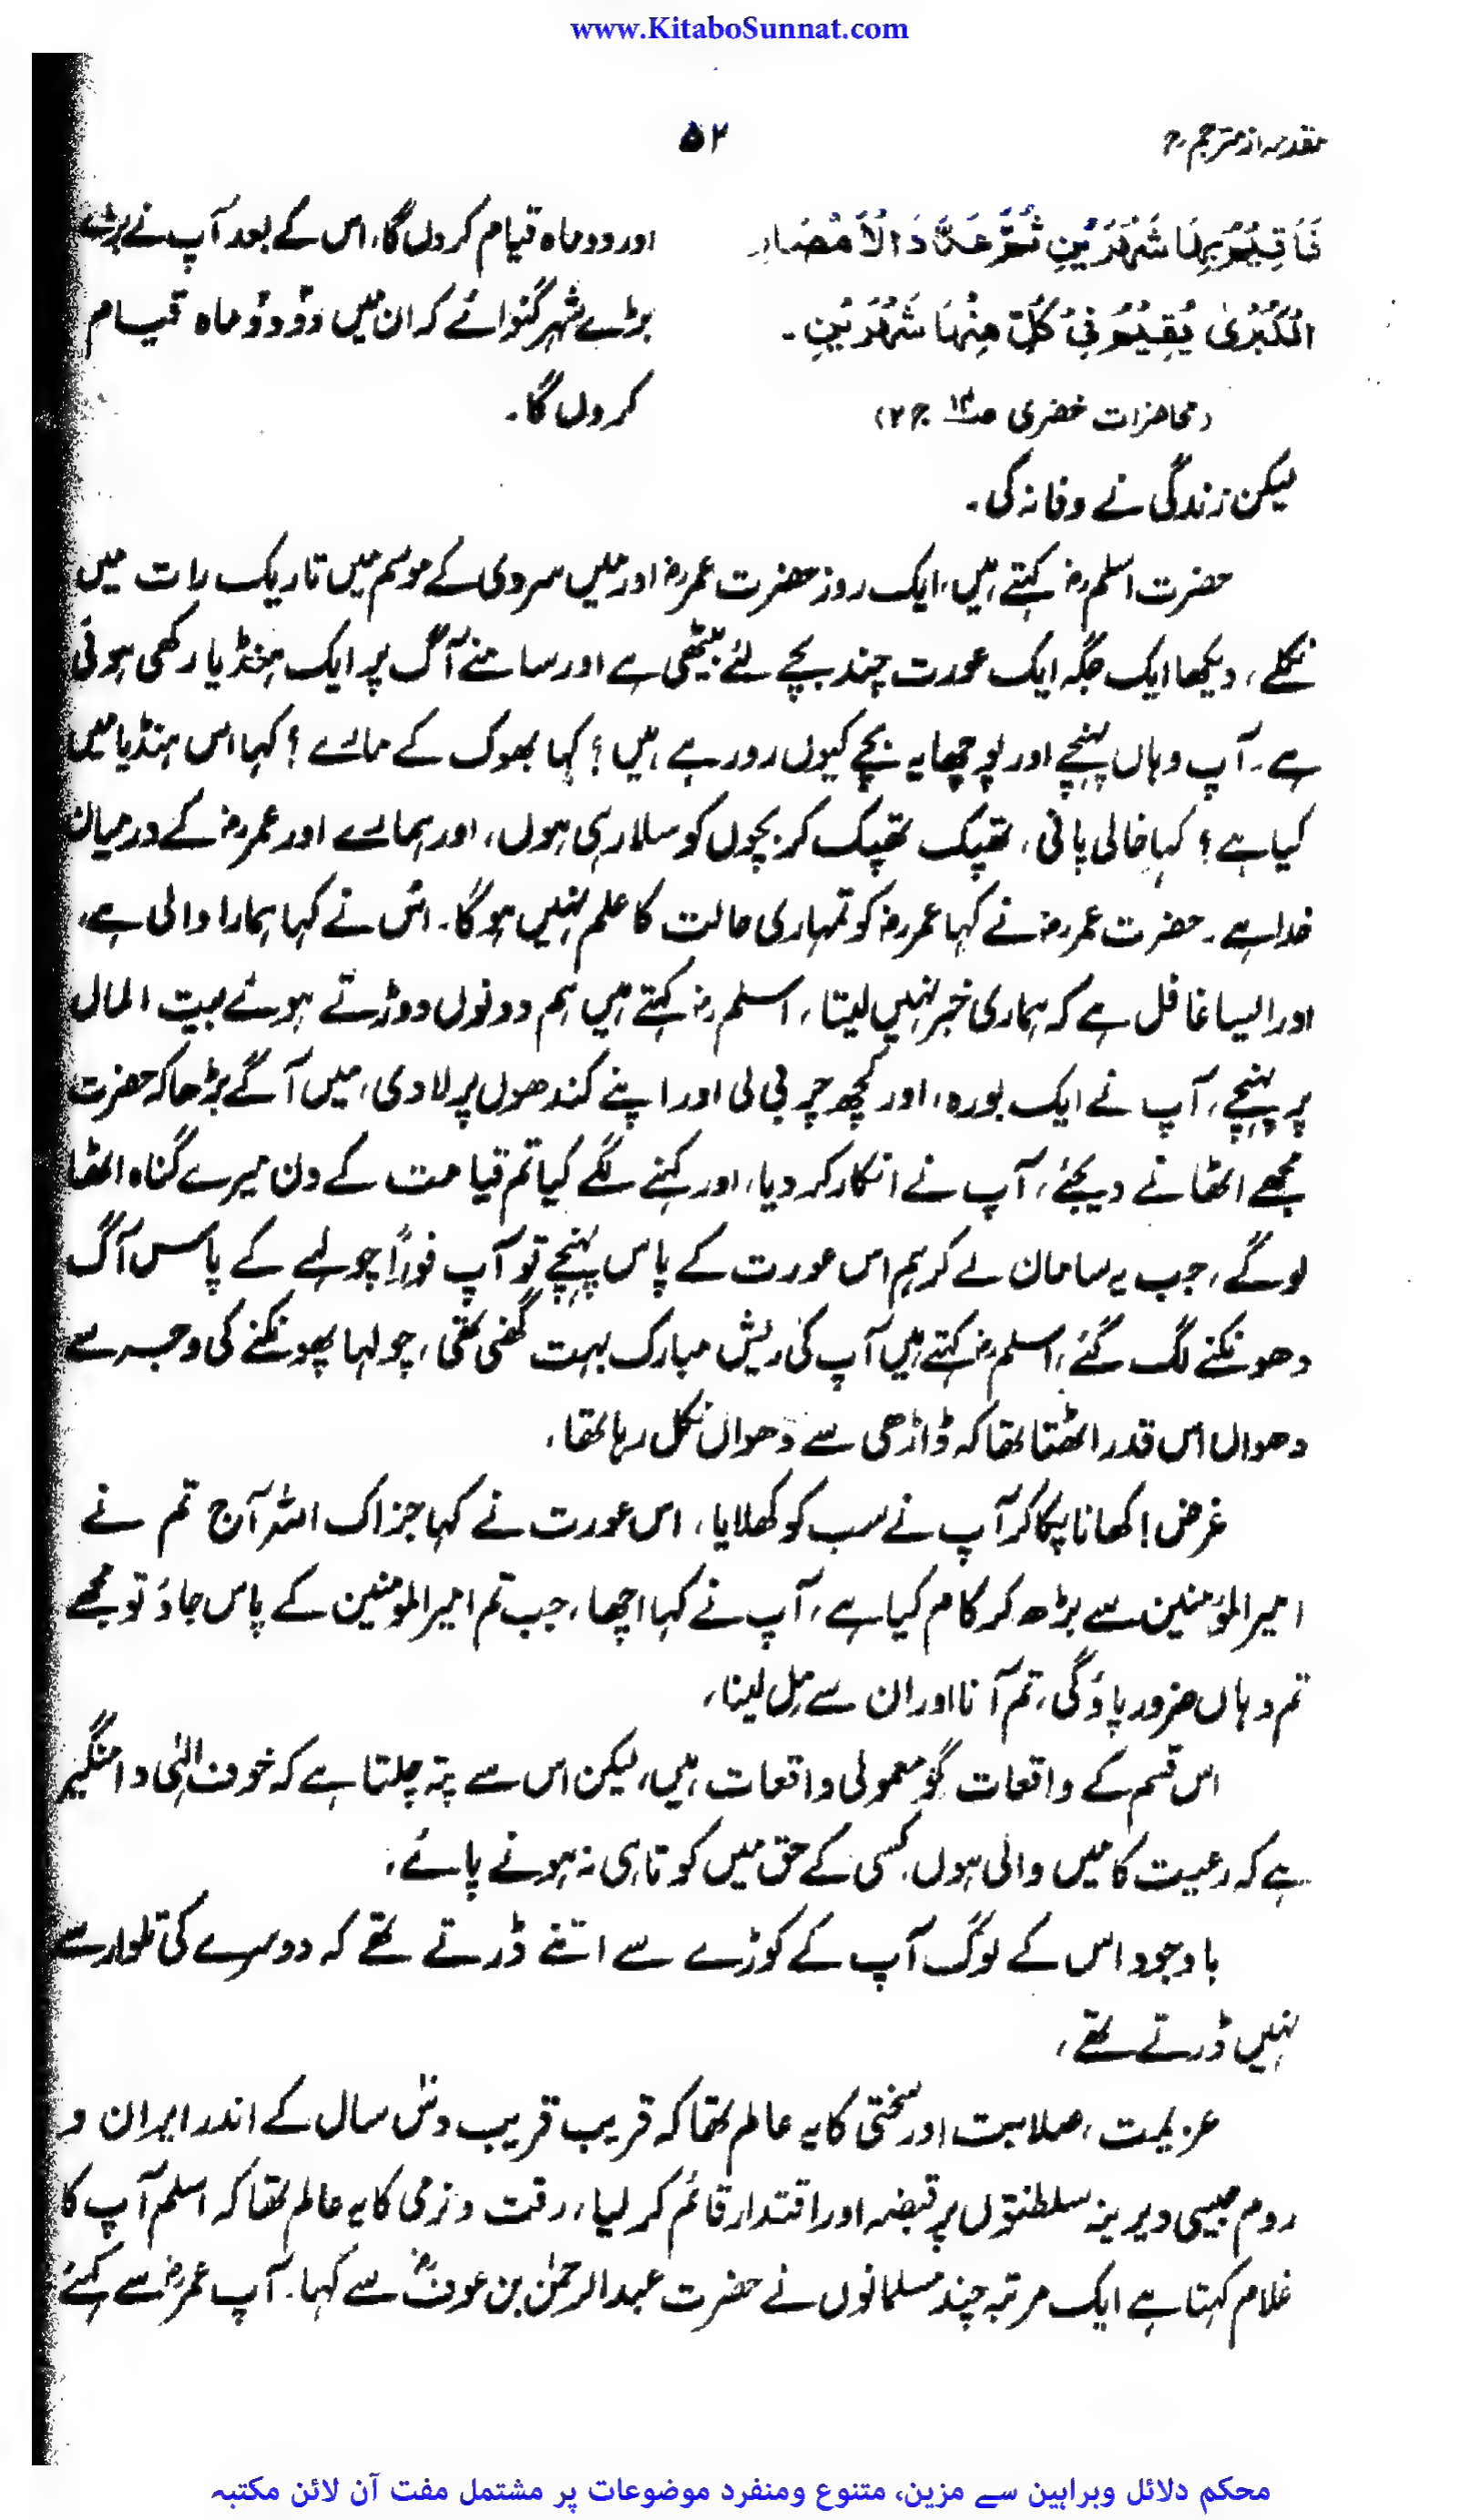 www.KitaboSunnat.com
مقدمہ از مترجمؒ
۵۲
فَاُقِيْمُ بِهَا شَهْرَيْنِ ثُمَّ عَدَّدَ الْاَمْصَارِ
الْكُبْرٰى يُقِيْمُ فِيْ كُلٍّ مِنْهَا شَهْرَيْنِ۔
(محاضرات خضری ج۲)
اور دو ماہ قیام کروں گا، اس کے بعد آپ نے بڑے
بڑے شہر گنوائے کہ ان میں دو دو ماہ قیام
کروں گا۔
لیکن زندگی نے وفا نہ کی۔
حضرت اسلمؓ کہتے ہیں، ایک روز حضرت عمرؓ اور میں سردی کے موسم میں تاریک رات میں
نکلے، دیکھا ایک جگہ ایک عورت چند بچے لئے بیٹھی ہے اور سامنے آگ پر ایک ہنڈیا رکھی ہوئی
ہے۔ آپ وہاں پہنچے اور پوچھا یہ بچے کیوں رو رہے ہیں؟ کہا بھوک کے مارے؟ کہا اس ہنڈیا میں
کیا ہے؟ کہا خالی پانی، تھپک تھپک کر بچوں کو سلا رہی ہوں، اور ہمارے اور عمرؓ کے درمیان
خدا ہے۔ حضرت عمرؓ نے کہا عمرؓ کو تمہاری حالت کا علم نہیں ہوگا۔ اس نے کہا ہمارا والی ہے،
اور ایسا غافل ہے کہ ہماری خبر نہیں لیتا، اسلمؓ کہتے ہیں ہم دونوں دوڑتے ہوئے بیت المال
پر پہنچے، آپ نے ایک بورہ، اور کچھ چربی لی اور اپنے کندھوں پر لادی، میں آگے بڑھا کہ حضرت
مجھے اٹھانے دیجئے، آپ نے انکار کر دیا، اور کہنے لگے کیا تم قیامت کے دن میرے گناہ اٹھا
لوگے، جب یہ سامان لے کر ہم اس عورت کے پاس پہنچے تو آپ فوراً چولہے کے پاس آگ
دھونکنے لگ گئے، اسلمؓ کہتے ہیں آپ کی ریش مبارک بہت گھنی تھی، چولہا پھونکنے کی وجہ سے
دھواں اس قدر اٹھتا تھا کہ ڈاڑھی سے دھواں نکل رہا تھا،
غرض! کھانا پکا کر آپ نے سب کو کھلایا، اس عورت نے کہا جزاک اللہ آج تم نے
امیر المؤمنین سے بڑھ کر کام کیا ہے، آپ نے کہا اچھا، جب تم امیر المومنین کے پاس جاؤ تو مجھے
تم وہاں ضرور پاؤگی، تم آنا اور ان سے مل لینا،
اس قسم کے واقعات گو معمولی واقعات ہیں، لیکن اس سے پتہ چلتا ہے کہ خوف الٰہی دامنگیر
ہے کہ رعیت کا میں والی ہوں، کسی کے حق میں کوتاہی نہ ہونے پائے،
باوجود اس کے لوگ آپ کے کوڑے سے اتنے ڈرتے تھے کہ دوسرے کی تلوار سے
نہیں ڈرتے تھے،
عزیمت، صلابت اور سختی کا یہ عالم تھا کہ قریب قریب دس سال کے اندر ایران و
روم جیسی دیرینہ سلطنتوں پر قبضہ اور اقتدار قائم کر لیا، رقت و نرمی کا یہ عالم تھا کہ اسلم آپ کا
غلام کہتا ہے ایک مرتبہ چند مسلمانوں نے حضرت عبدالرحمٰن بن عوفؓ سے کہا۔ آپ عمرؓ سے کہئے
محکم دلائل وبراہین سے مزین، متنوع ومنفرد موضوعات پر مشتمل مفت آن لائن مکتبہ